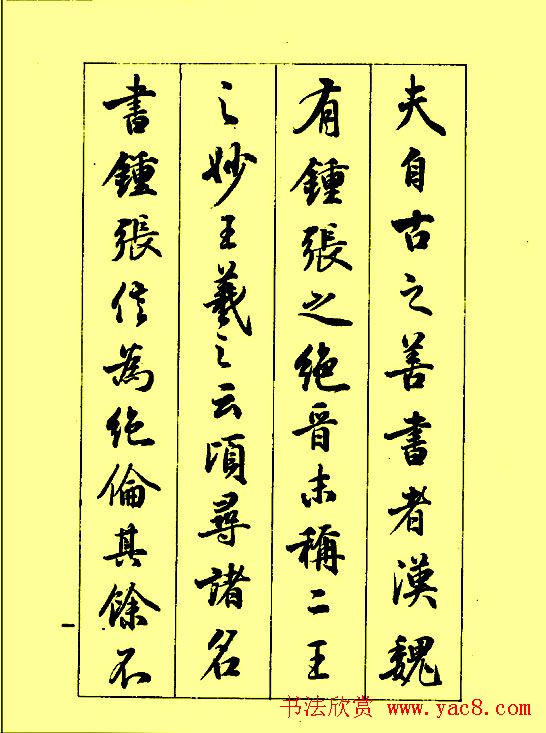 夫自古之善書者漢魏
有鍾張之絶晋末稱二王
之妙王羲之云頃尋諸名
書鍾張信為絶倫其餘不
一
书法欣赏 www.yac8.com